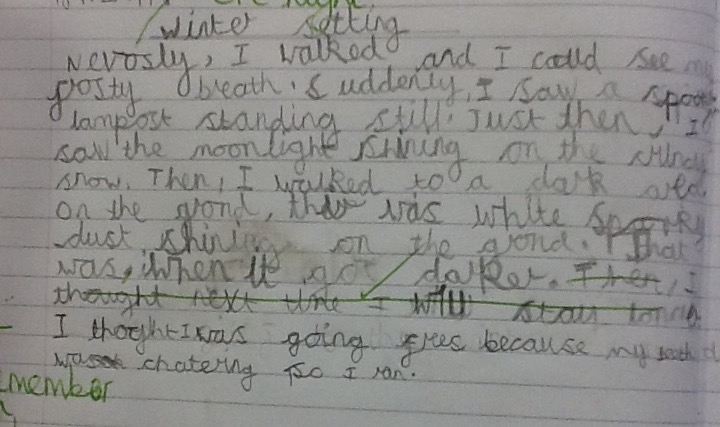 winter setting
Nevosly, I walked and I could see my
frosty breath. Suddenly, I saw a spooky
lampost standing still. Just then, I
saw the moonlight shining on the
snow. Then, I walked to a dark area
on the grond, ther was white sparky
dust shining on the grond. That
was, when it got darker. Then, I
thought next time I will stay
I thoght I was going frees because my teeth
was chatering so I ran.
member